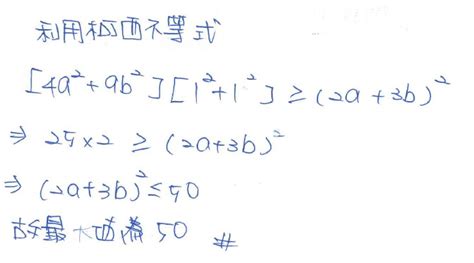 利用柯西不等式
[4a²+9b²][1²+1²]≥(2a+3b)²
⇒ 25×2 ≥ (2a+3b)²
⇒ (2a+3b)²≤50
故最大值為 50 #